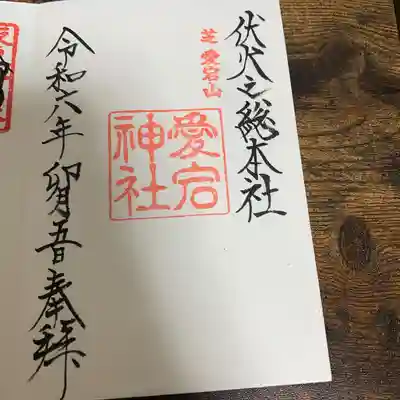 伏火之総本社
芝 愛宕山
愛宕
神社
令和六年 卯月五日奉拝